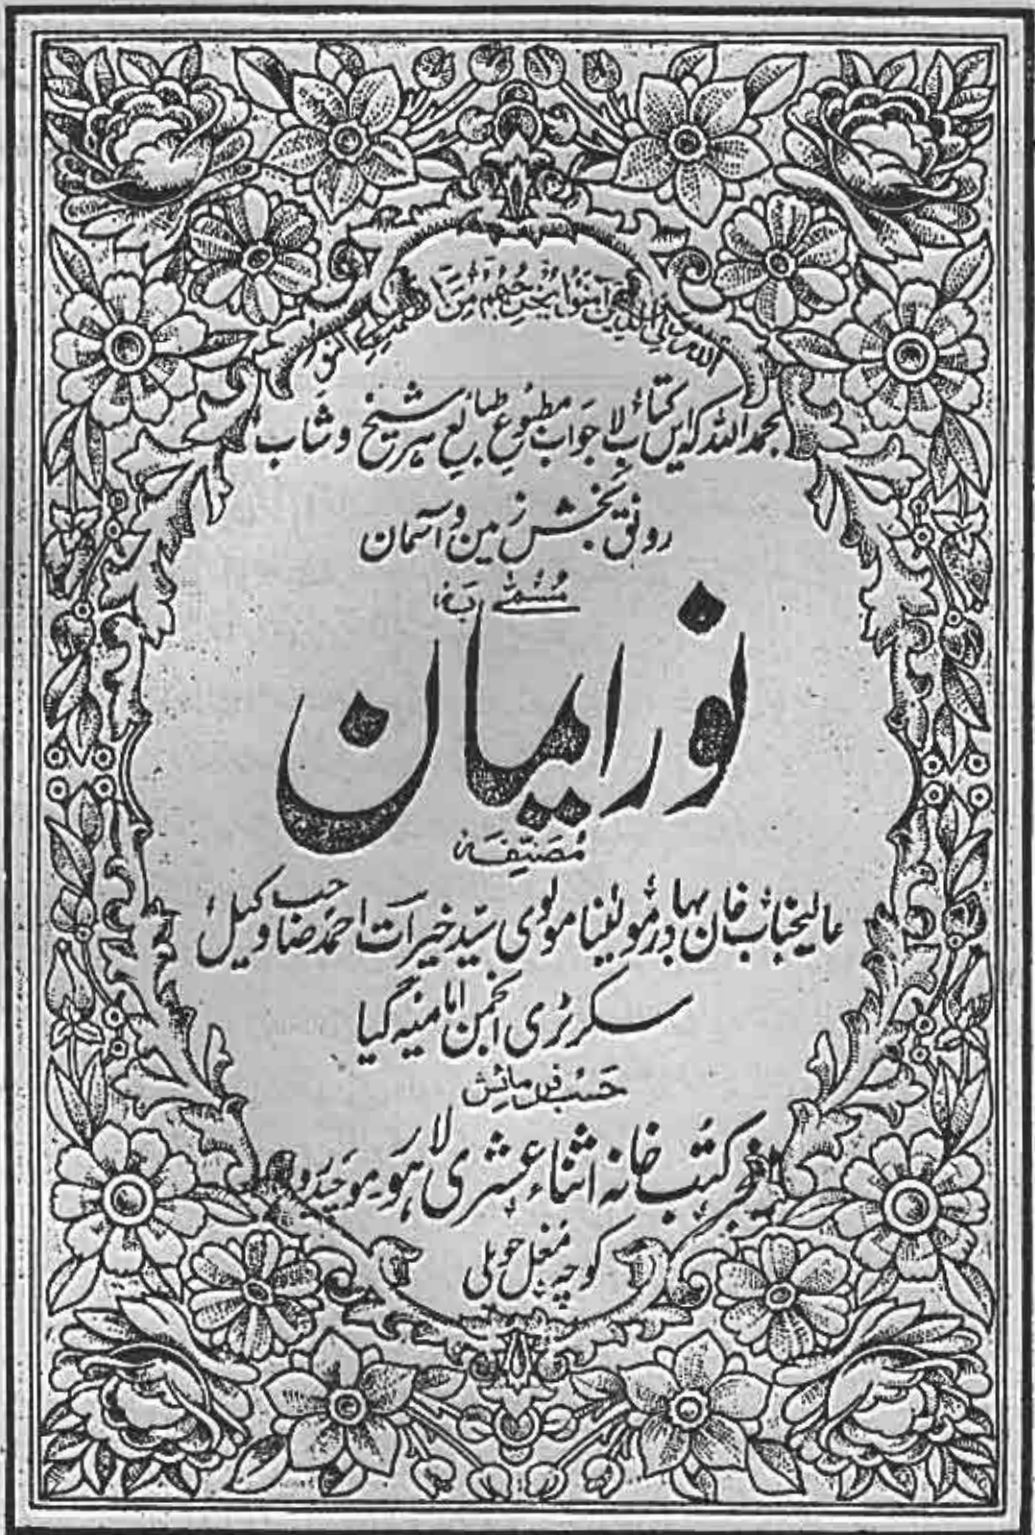 اللہ ولی الذین آمنوا یخرجهم من الظلمٰت الی النور
بحمد اللہ کہ ایں کتاب لا جواب مطبوع طبائع ہر شیخ و شاب
رونق بخش زمین و آسمان
مسمّٰے بہ
نور ایمان
مصنفہ
عالیجناب خان بہادر مولینا مولوی سید خیرات احمد صاحب وکیل
سکرٹری انجمن امامیہ گیا
حسب فرمائش
کتب خانہ اثناء عشری لاہور موچیدروازہ
کوچہ مغل حویلی